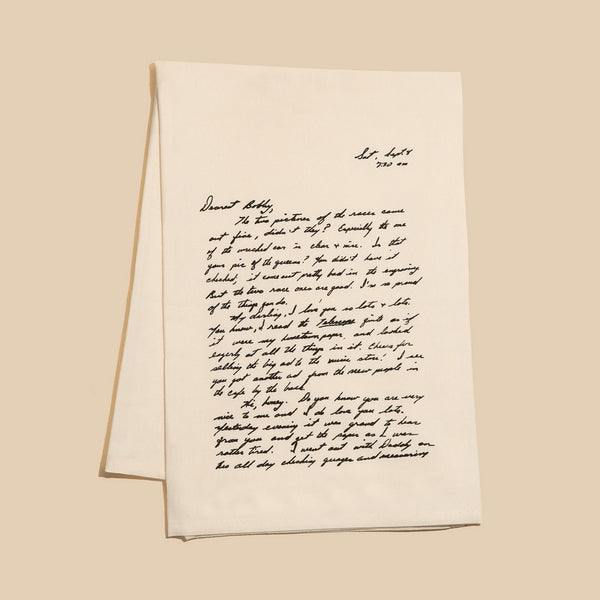 Sat, Sept 8
7:30 am
Dearest Bobby,
The two pictures of the races came
out fine, didn't they? Especially the one
of the wrecked car is clear & nice. Is that
your pic of the queens? You didn't have it
checked, it came out pretty bad in the engraving.
But the two race ones are good. I'm so proud
of the things you do.
My darling, I love you so lots & lots.
You know, I read the Telescope first as if
it were my hometown paper and looked
eagerly at all the things in it. Cheers for
selling the big ad to the music store! I see
you got another ad from the new people in
the cafe by the bank.
Hi, honey. Do you know you are very
nice to me and I do love you lots.
Yesterday evening it was grand to hear
from you and get the paper as I was
rather tired. I went out with Daddy on
his all day checking guages and measuring